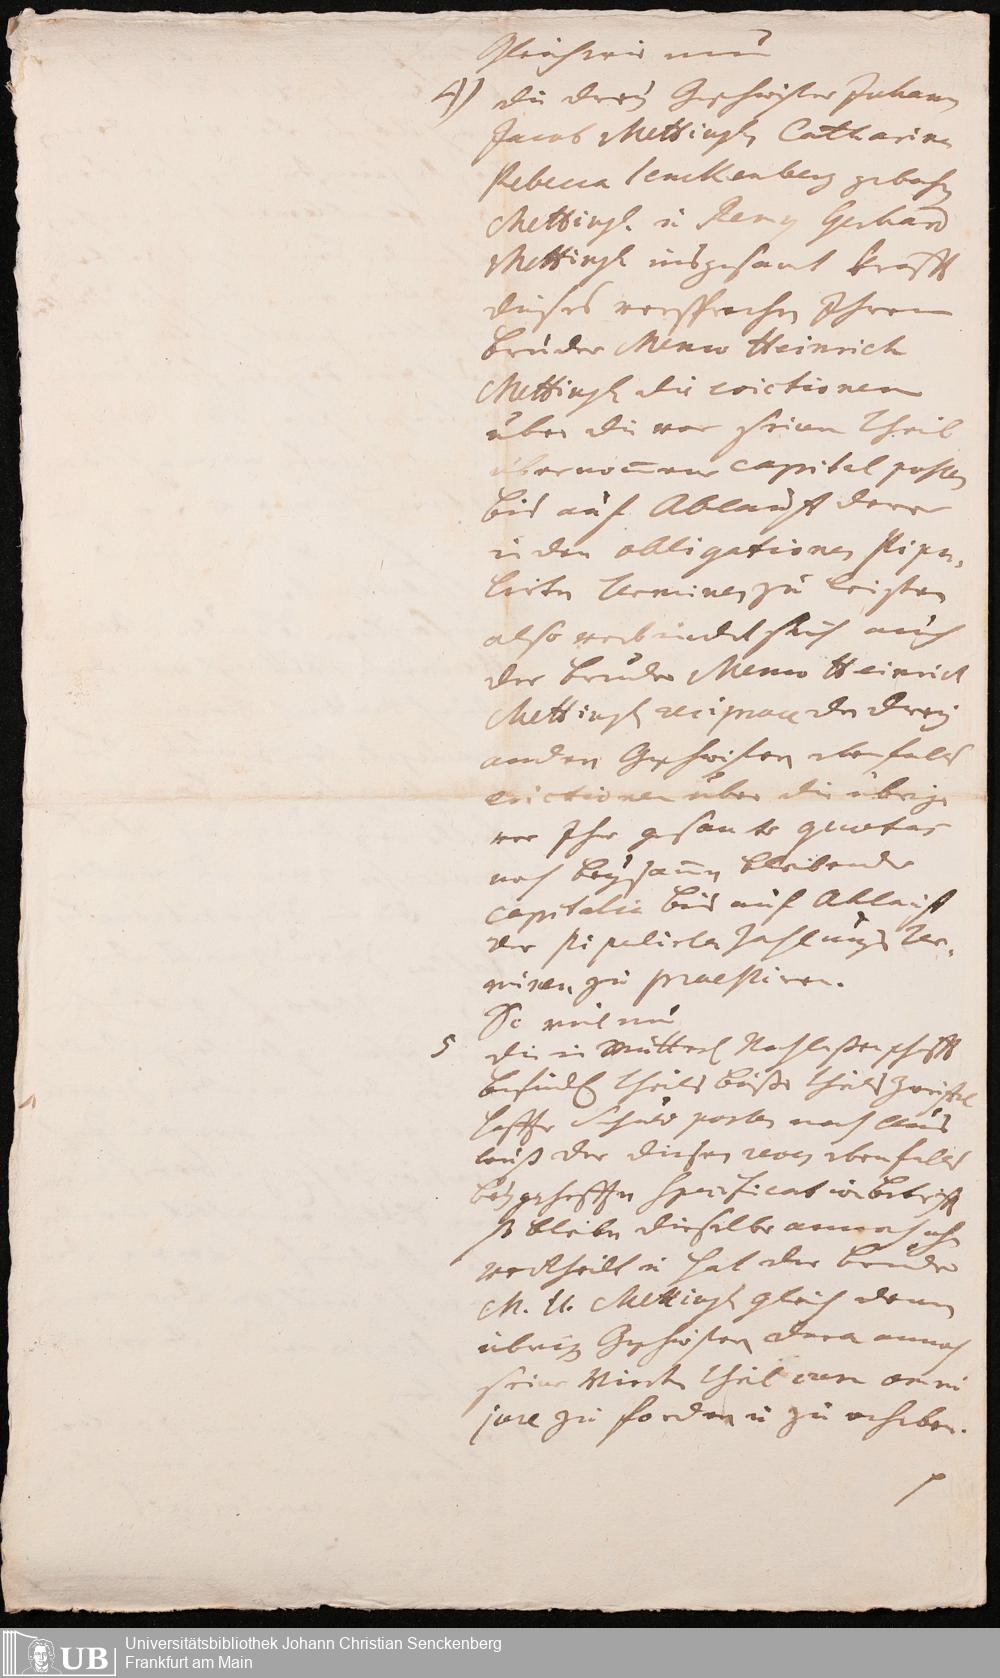 Gleichwie nun
4)) die dreÿ Geschwister Johann
Jacob Mettingh, Catharina
Rebecca Senckenberg gebohrne
Mettingh. u Remy Gerhard
Mettingh insgesamt krafft
dieses versprechen Ihrem
Bruder Menso Heinrich
Mettingh die evictionem
über die vor seinen Theil
übernom̅ene capital posten
biß auf Ablauff derer
in den obligationen stipu-
lirten Terminen zu leisten
also verbindet sich auch
der Bruder Menso Heinrich
Mettingh reciproce den dreÿ
andern Geschwistern ebenfalls
evictionem über die übrige
vor Ihr gesamte quotas
noch beÿsam̅en bleibende
capitalia biß auf Ablauff
der stipulirten Zahlungs Ter-
minen zu praestiren.
So viel nun
5 die in Mütterl. Nachlaßenschafft
befindl. theils böße theils zweiffel
haffte Schuld posten nach aus
weiß der diesem ebenfalls
beÿgehefften Specification betrifft
so bleiben dieselbe annoch ohn
vertheilt u hat der Bruder
M. H. Mettingh gleich denen
übrigen Geschwistern daran annoch
seinen Vierten Theil cum omni
jure zu fordern u zu erheben.
Universitätsbibliothek Johann Christian Senckenberg
UB Frankfurt am Main